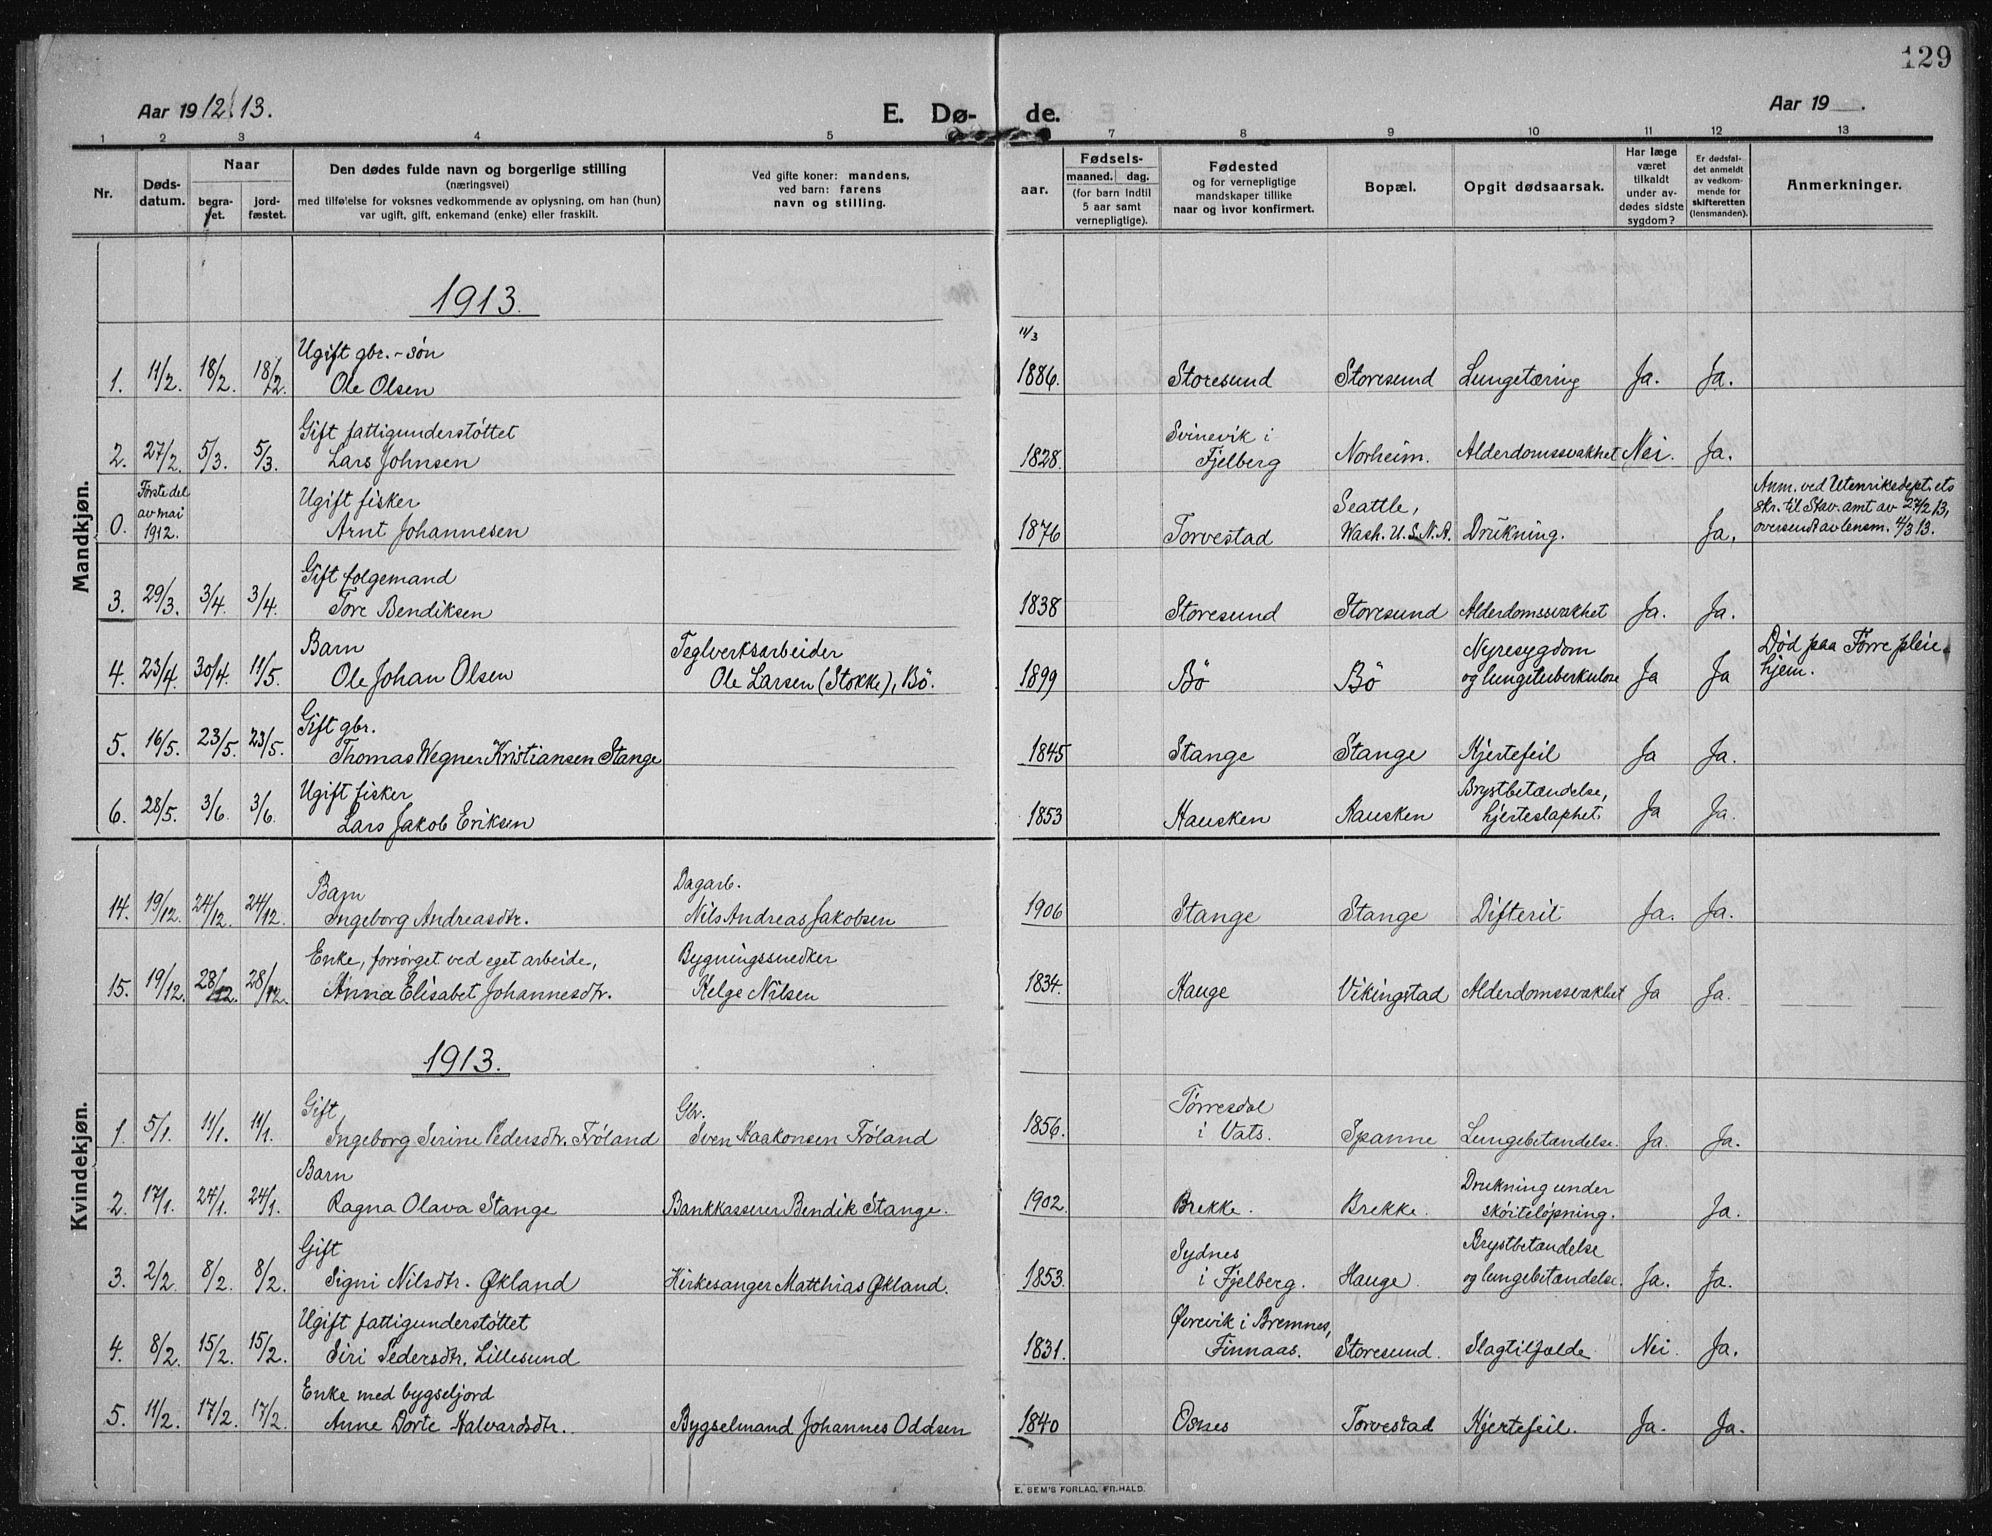 129
Aar 1912/13.
E. Dø- de.
Aar 19 .
1 2 3 4 5 7 8 9 10 11 12 13
Nr.
Døds-
datum.
Naar
begra-
vet.
jord-
fæstet.
Den dødes fulde navn og borgerlige stilling
(næringsvei)
med tilføielse for voksnes vedkommende av oplysning, om han (hun)
var ugift, gift, enkemand (enke) eller fraskilt.
Ved gifte koner: mandens,
ved barn: farens
navn og stilling.
aar.
Fødsels-
maaned. dag.
(for barn indtil
5 aar samt
vernepligtige).
Fødested
og for vernepligtige
mandskaper tillike
naar og hvor konfirmert.
Bopæl.
Opgit dødsaarsak.
Har læge
været
tilkaldt
under av-
dødes sidste
sygdom?
Er dødsfal-
det anmeldt
av vedkom-
mende for
skifteretten
(lensmanden).
Anmerkninger.
Mandkjøn.
1913.
11/3
Ugift gbr.-søn
1. 11/2. 18/2. 18/2. Ole Olsen 1886. Storesund Storesund Lungetæring Ja. Ja.
Gift fattigunderstøttet Svinevik i
2. 27/2. 5/3. 5/3. Lars Johnsen 1828. Fjelberg Norheim. Alderdomssvakhet Nei. Ja.
Første del Ugift fisker Seattle, Anm. ved Utenriksdept.ets
av mai skr. til Stav. amt av 27/2 13,
0. 1912. Arnt Johannesen 1876 Torvestad Wash. U.S.N.A. Drukning. Ja. oversendt av lensm. 4/3 13.
Gift folgemand
3. 29/3. 3/4. 3/4. Tore Bendiksen 1838 Storesund Storesund Alderdomssvakhet Ja. Ja.
Barn Teglverksarbeider Nyresygdom Død paa Førre pleie-
4. 23/4. 30/4. 11/5. Ole Johan Olsen Ole Larsen (Stokke), Bö. 1899 Bö Bö og lungetuberkulose Ja Ja hjem.
Gift gbr.
5. 16/5. 23/5. 23/5. Thomas Wegner Kristiansen Stange 1845 Stange Stange Hjertefeil Ja Ja.
Ugift fisker Brystbetændelse,
6. 28/5. 3/6. 3/6. Lars Jakob Eriksen 1853 Hausken Hausken hjerteslaphet. Ja Ja.
Kvindekjøn.
Barn Dagarb.
14. 19/12. 24/12. 24/12. Ingeborg Andreasdtr. Nils Andreas Jakobsen 1906 Stange Stange Difterit Ja. Ja.
Enke, forsørget ved eget arbeide, Bygningssnedker
15. 19/12. 28/12. 28/12. Anna Elisabet Johannesdtr. Helge Nilsen 1834. Hauge Vikingstad Alderdomssvakhet Ja Ja.
1913.
Gift Gbr. Tørresdal
1. 5/1. 11/1. 11/1. Ingeborg Serine Pedersdtr. Frøland Sven Haakonsen Frøland 1856. i Vats. Spanne Lungebetændelse. Ja. Ja.
Barn Drukning under
2. 17/1. 24/1. 24/1. Ragna Olava Stange Bankkasserer Bendik Stange. 1902. Brekke. Brekke. skøiteløpning. Ja.
Gift Sydnes Brystbetændelse
3. 2/2. 8/2. 8/2. Signi Nilsdtr. Økland Kirkesanger Matthias Økland. 1853. i Fjelberg. Hauge og lungebetændelse. Ja. Ja.
Ugift fattigunderstøttet Øvrevik i Bremnes,
4. 8/2. 15/2. 15/2. Siri Pedersdtr. Lillesund 1831. Finnaas. Storesund. Slagtilfælde Nei. Ja.
Enke med bygseljord
5. 11/2. 17/2. 17/2. Anne Dorte Halvardsdtr. Bygselmand Johannes Oddsen 1840 Osnes Torvestad Hjertefeil. Ja. Ja.
E. SEM'S FORLAG, FR.HALD.